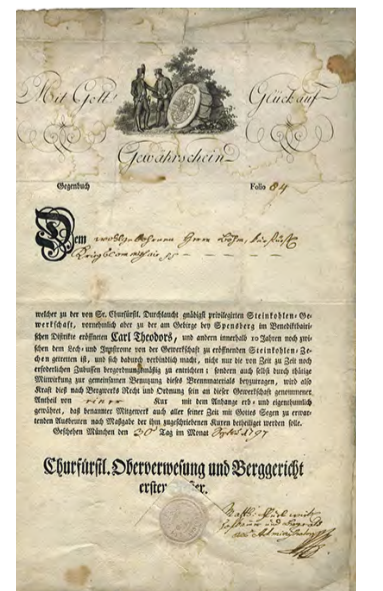 Mit Gott! Glück auf
Gewährschein
Gegenbuch Folio 84
Dem wohlgebohrnen Herrn
welcher zu der von Sr. Churfürstl. Durchlaucht gnädigst privilegirten Steinkohlen-Ge-
werkschaft, vornehmlich aber zu der am Gebirge bey Spensberg im Benediktbairi-
schen Distrikte eröffneten Carl Theodors, und andern innerhalb 10 Jahren noch zwi-
schen dem Lech- und Innstrome von der Gewerkschaft zu eröffnenden Steinkohlen-Ze-
chen getretten ist, und sich dadurch verbindlich macht, nicht nur die von Zeit zu Zeit noch
erforderlichen Zubussen bergordnungsmäßig zu entrichten: sondern auch selbst durch thätige
Mitwürkung zur gemeinsamen Benutzung dieses Brennmaterials beyzutragen, wird also
Kraft dieß nach Bergwerks Recht und Ordnung sein an dieser Gewerkschaft genommener
Antheil von einer Kux mit dem Anhange erb- und eigenthumlich
gewähret, daß benannter Mitgewerk auch aller seiner Zeit mit Gottes Segen zu erwar-
tenden Ausbeuten nach Maßgabe der ihm zugeschriebenen Kuxen betheiliget werden solle.
Geschehen München den 30 Tag im Monat 1797
Churfürstl. Oberverwesung und Berggericht